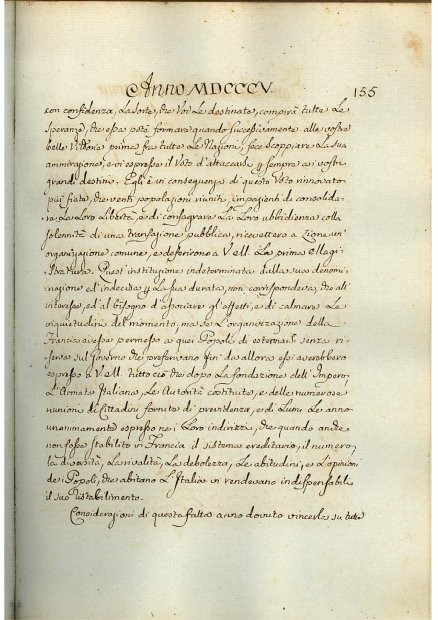 Anno MDCCCV. 155
con confidenza, La sorte, che Voi Le destinate, compirà tutte Le
speranze, che essa potè formare quando successivamente alle vostre
belle Vittorie prima fra tutte Le Nazioni, fece scoppiare La sua
ammirazione, e vi espresse il Voto d'attaccarsi per sempre ai vostri
grandi destini. Egli è in conseguenza di questo Voto rinnovato
più fiate, che venti popolazioni riunite, impazienti di consolida-
re La Loro Libertà, e di consagrare La Loro ubbidienza colla
solennità di una transazione pubblica, ricevettero a Lione un'
organizazione comune, e deferirono a V. M. La prima Magi-
stratura. Quest'instituzione indeterminata dalla sua denomi-
nazione ed indecisa per La sua durata, non corrispondeva, che all'
interesse, ed al bisogno d'associare gl'affetti, e di calmare Le
inquietudini del momento, ma se L'organizzazione della
Francia avesse permesso a quei Popoli di esternarsi senza ri-
serva sul Governo che preferivano fin da allora essi avrebbero
espresso a V. M. tutto ciò che dopo La fondazione dell'Impero,
L'Armata Italiana, Le Autorità costituite, e delle numerose
riunioni di Cittadini forniti di previdenza, e di Lumi Le anno
unanimamente espresso nei Loro indirizzi, che quando anche
non fosse stabilito in Francia il sistema ereditario, il numero,
La diversità, La rivalità, La debolezza, Le abitudini, e L'opinione
de' Popoli, che abitano L'Italia vi rendevano indispensabile
il suo ristabilimento.
Considerazioni di questa fatta anno dovuto vincerla su tutte